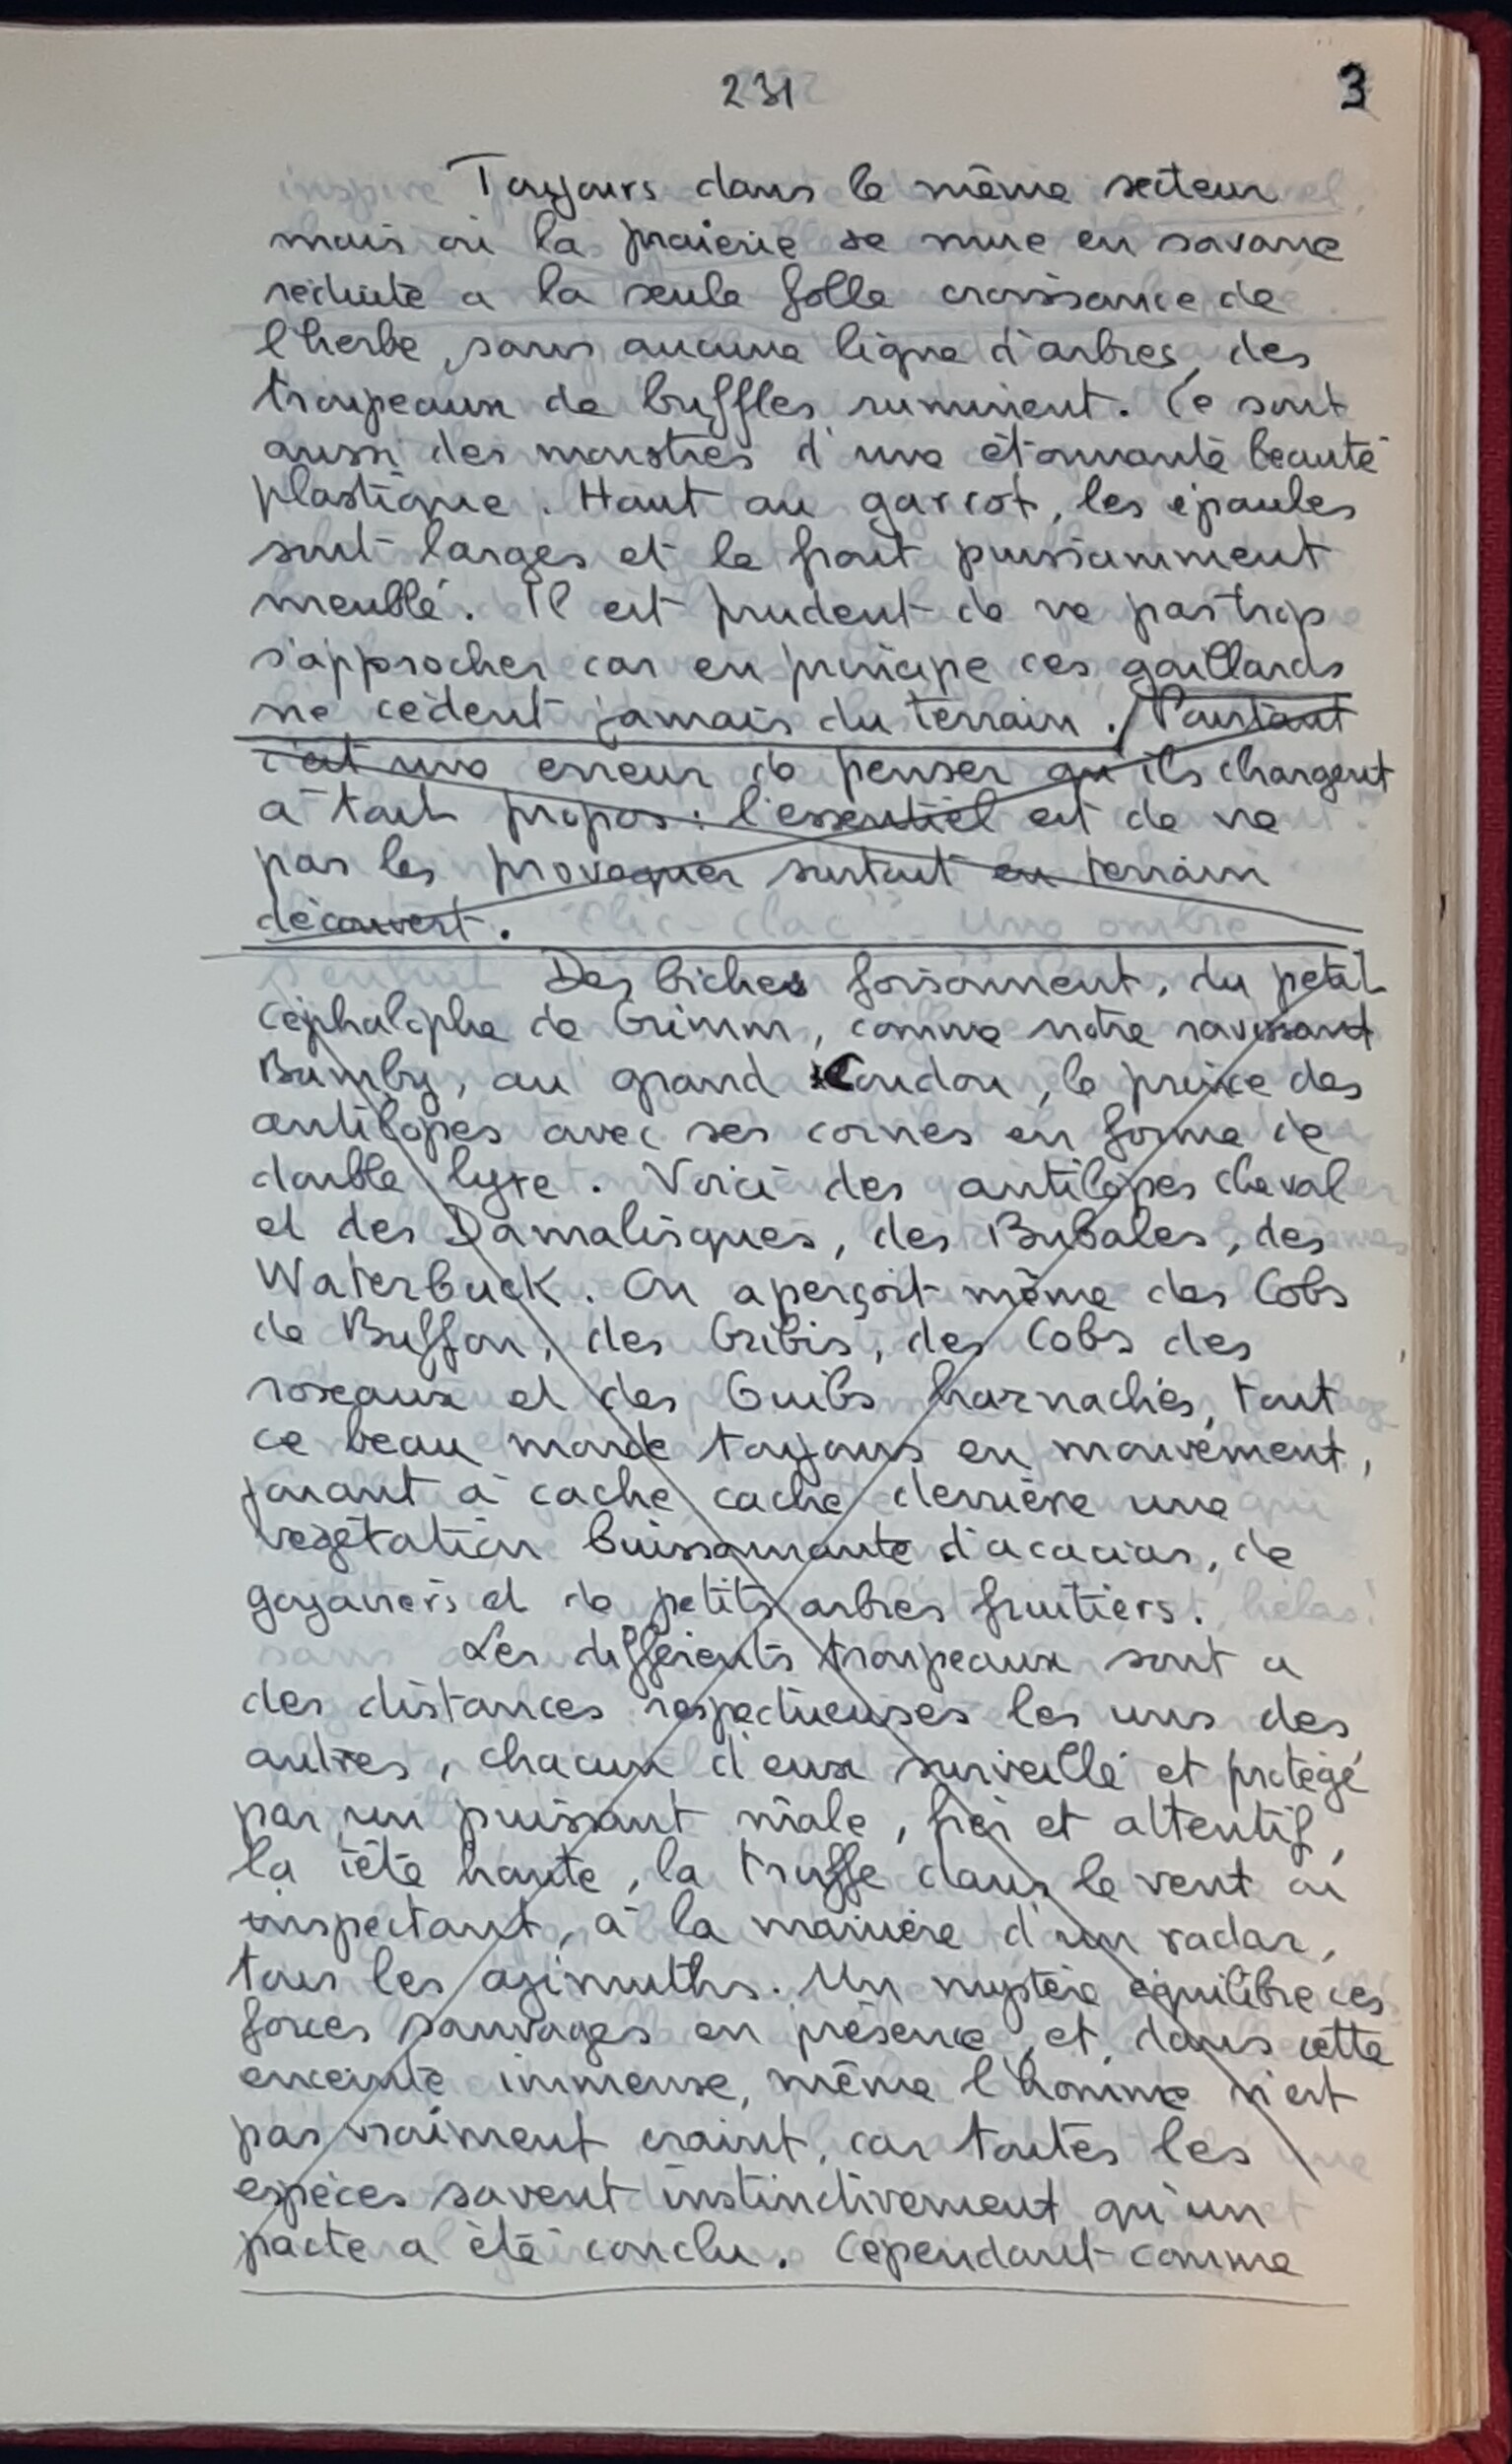 231
3
Toujours dans le même secteur
mais où la prairie se mue en savane
réduite à la seule folle croissance de
l'herbe, sans aucune ligne d'arbres, des
troupeaux de buffles ruminent. Ce sont
aussi des monstres d'une étonnante beauté
plastique. Haut au garrot, les épaules
sont larges et le front puissamment
meublé. Il est prudent de ne pas trop
s'approcher car en principe ces gaillards
ne cèdent jamais du terrain. Pourtant
c'est une erreur de penser qu'ils chargent
à tout propos : l'essentiel est de ne
pas les provoquer surtout en terrain
découvert.
Des biches foisonnent, du petit
céphalophe de Grimm, comme notre ravissant
Bamby, au grand Coudou, le prince des
antilopes avec ses cornes en forme de
double lyre. Voici des antilopes cheval
et des Damalisques, des Bubales, des
Waterbuck. On aperçoit même des Cobs
de Buffon, des Oribis, des Cobs des
roseaux et des Guibs harnachés, tout
ce beau monde toujours en mouvement,
jouant à cache cache derrière une
végétation buissonnante d'acacias, de
goyaviers et de petits arbres fruitiers.
Les différents troupeaux sont a
des distances respectueuses les uns des
autres, chacun d'eux surveillé et protégé
par un puissant mâle, fier et attentif,
la tête haute, la truffe dans le vent ou
inspectant, à la manière d'un radar,
tous les azimuths. Un mystère équilibre ces
forces sauvages en présence, et dans cette
enceinte immense, même l'homme n'est
pas vraiment craint, car toutes les
espèces savent instinctivement qu'un
pacte a été conclu. Cependant comme